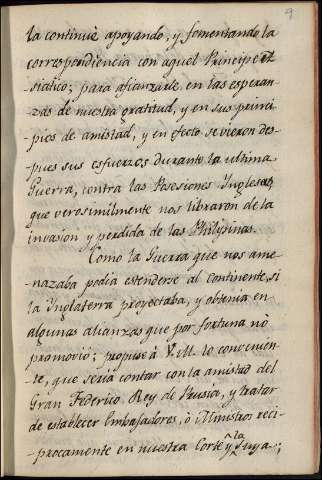 9
la continué apoyando, y fomentando la
correspondiencia con aquel Principe A-
-siatico; para afianzarle en las esperan-
-zas de nuestra gratitud, y en sus princi-
-pios de amistad, y en efecto se vieron des-
-pues sus esfuerzos durante la ultima
Guerra, contra las Posesiones Inglesas,
que verosimilmente nos libraron de la
invasion y perdida de las Philipinas.
Como la Guerra que nos ame-
-nazaba podia estenderse al continente, si
la Ynglaterra proyectaba, y obtenia en
algunas alianzas que por fortuna nò
promovió; propuse á V.M. lo convenien-
-te, que seria contar con la amistad del
Gran Federico Rey de Prusia, y tratar
de establecer Embajadores, ò Ministros reci-
-procamente en nuestra Corte y la suya;